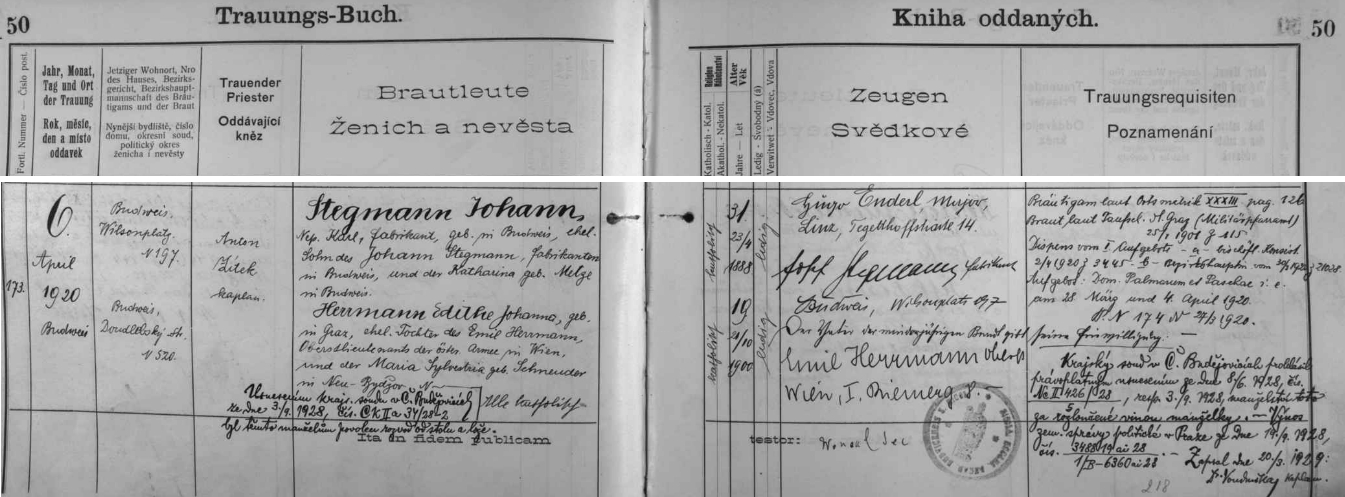 50
Trauungs-Buch.
Kniha oddaných.
50
Fortl. Nummer — Číslo post.
Jahr, Monat,
Tag und Ort
der Trauung
Rok, měsíc,
den a místo
oddavek
Jetziger Wohnort, Nro
des Hauses, Bezirks-
gericht, Bezirkshaupt-
mannschaft des Bräu-
tigams und der Braut
Nynější bydliště, číslo
domu, okresní soud,
politický okres
ženicha i nevěsty
Trauender
Priester
Oddávající
kněz
Brautleute
Ženich a nevěsta
Religion
Náboženství
Katholisch - Katol.
Akathol. - Nekatol.
Alter
Věk
Jahre — Let
Ledig - Svobodný (á)
Verwitwet - Vdovec, Vdova
Zeugen
Svědkové
Trauungsrequisiten
Poznamenání
173.
6.
April
1920
Budweis
Budweis.
Wilsonplatz
N 197.
Budweis,
Doudlebský st.
N 520.
Anton
Zítek
kaplan.
Stegmann Johann,
Nep. Karl, Fabrikant, geb. in Budweis, ehel.
Sohn des Johann Stegmann, Fabrikanten
in Budweis, und der Katharina geb. Melze
in Budweis.
Herrmann Edithe Johanna, geb.
in Graz, ehel. Tochter des Emil Herrmann,
Oberstlieutenants der österr. Armee in Wien,
und der Maria Sylvestria geb. Schneider
in Neu-Bydžov
Alle katholisch
Usnesením krajs. soudu v Č. Budějovicích
ze dne 3./9. 1928, čís. Ck II a 37/28-2
byl těmto manželům povolen rozvod od stolu a lože.
Ita in fidem publicam
katholisch
31
23/4
1888
ledig
katholisch
19
21/10
1900
ledig
Hugo Enderl Major,
Linz, Tegetthoffstraße 14.
Josef Stegmann, Fabrikant
Budweis, Wilsonplatz 197
Der Vater der minderjährigen Braut gibt
seine Einwilligung.
Emil Herrmann Oberst
Wien, I. Riemerg. 8.
testor:
Bräutigam laut Ortsmetrik XXXIII pag. 126
Braut laut Taufsch. d. Graz (Militärpfarramt)
25/1 1901 Z 115
Dispens vom I Aufgebote - a - bischöfl. Konsist.
2/4 1920 Z 2445
Aufgebot: Dom. Palmarum et Paschae i. e.
am 28 März und 4. April 1920.
Krajský soud v Č. Budějovicích prohlásil
pravoplatným usnesením ze dne 8/6. 1928, čís.
Nc II 426/28, resp. 3./9. 1928, manželství toto
za rozloučené vinou manželky. — Výnos
zem. správy politické v Praze ze dne 19./9. 1928,
čís. 348819 ai 28
1/B-6360 ai 28
Zapsal dne 20/3. 1929:
kaplan.
218